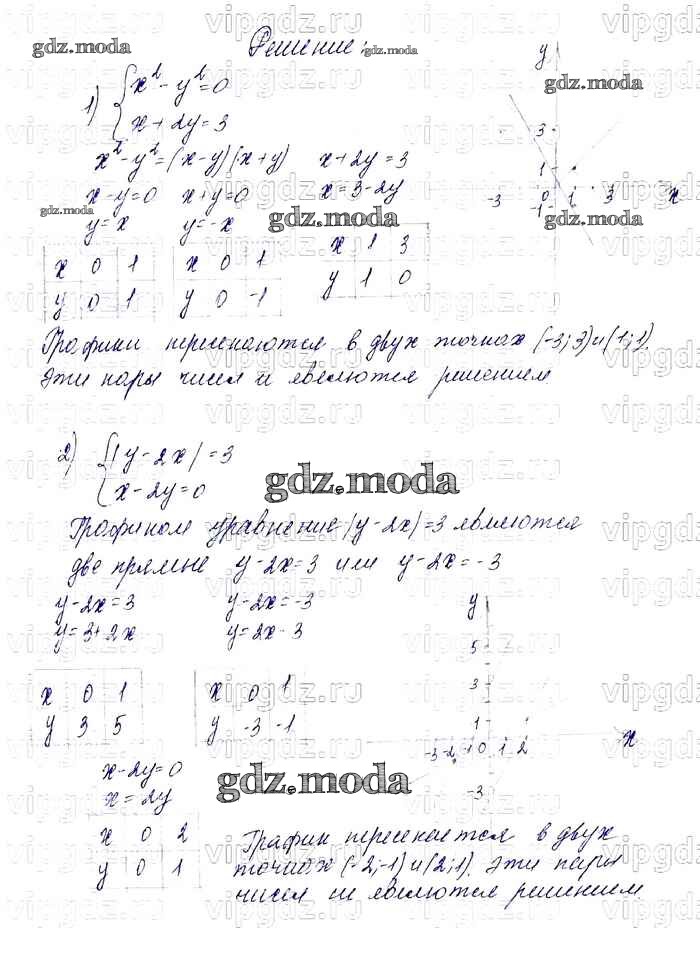 Решение:
1) { x² - y² = 0
x + 2y = 3
x² - y² = (x-y)(x+y) x + 2y = 3
x - y = 0 x + y = 0 x = 3 - 2y
y = x y = -x
x 0 1 x 0 1 x 1 3
y 0 1 y 0 -1 y 1 0
y
3
1
-3 0 1 3 x
-1
Графики пересекаются в двух точках (-3; 3) и (1; 1).
Эти пары чисел и являются решением
2) { |y - 2x| = 3
x - 2y = 0
Графиком уравнение |y - 2x| = 3 являются
две прямые y - 2x = 3 или y - 2x = -3
y - 2x = 3 y - 2x = -3
y = 3 + 2x y = 2x - 3
x 0 1 x 0 1
y 3 5 y -3 -1
y
5
3
1
-3 -2 -1 0 1 2 x
-3
x - 2y = 0
x = 2y
x 0 2
y 0 1
График пересекается в двух
точках (-2; -1) и (2; 1). Эти пары
чисел и являются решением.
gdz.moda
gdz.moda
gdz.moda
gdz.moda
gdz.moda
gdz.moda
gdz.moda
gdz.moda
vipgdz.ru